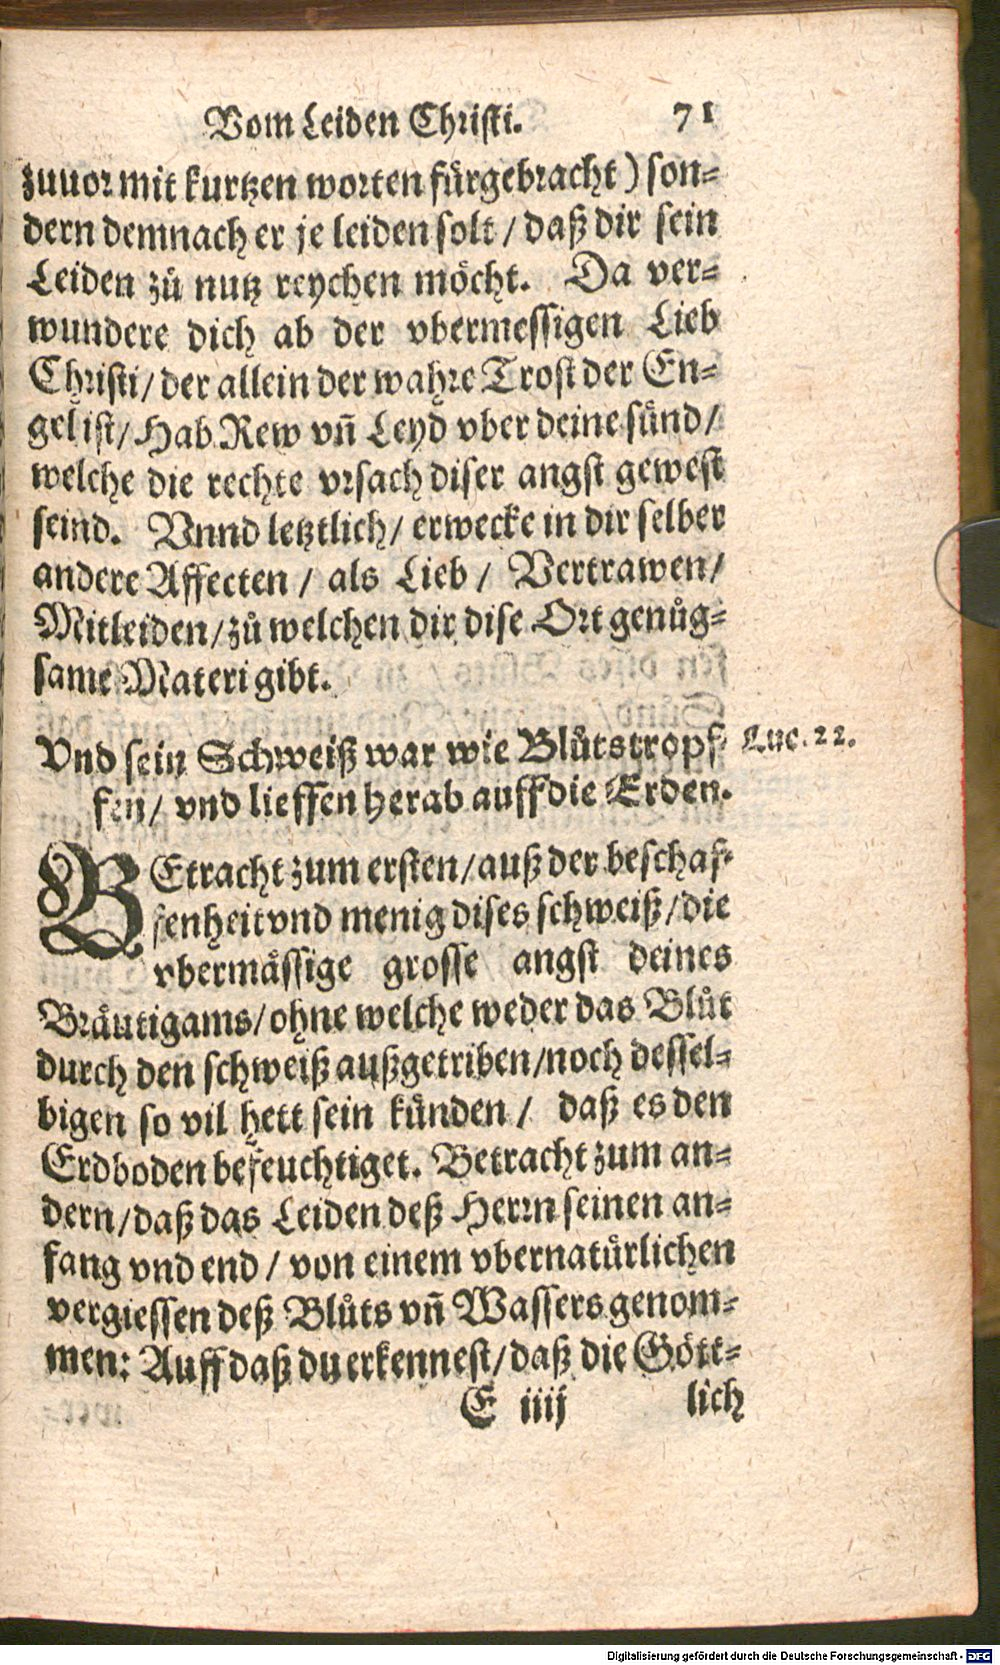 Vom Leiden Christi. 71
zuuor mit kurtzen worten fürgebracht) son-
dern demnach er je leiden solt / daß dir sein
Leiden zů nutz reychen möcht. Da ver-
wundere dich ab der vbermessigen Lieb
Christi / der allein der wahre Trost der En-
gel ist / Hab Rew vñ Leyd vber deine sünd /
welche die rechte vrsach diser angst gewest
seind. Vnnd letztlich / erwecke in dir selber
andere Affecten / als Lieb / Vertrawen /
Mitleiden / zů welchen dir dise Ort genůg-
same Materi gibt.
Vnd sein Schweiß war wie Blůtstropf- Luc. 22.
fen / vnd lieffen herab auff die Erden.
BEtracht zum ersten / auß der beschaf-
fenheit vnd menig dises schweiß / die
vbermässige grosse angst deines
Bräutigams / ohne welche weder das Blůt
durch den schweiß außgetriben / noch dessel-
bigen so vil hett sein künden / daß es den
Erdboden befeuchtiget. Betracht zum an-
dern / daß das Leiden deß Herrn seinen an-
fang vnd end / von einem vbernatürlichen
vergiessen deß Blůts vñ Wassers genom-
men: Auff daß du erkennest / daß die Gött-
E iiij lich
Digitalisierung gefördert durch die Deutsche Forschungsgemeinschaft - DFG